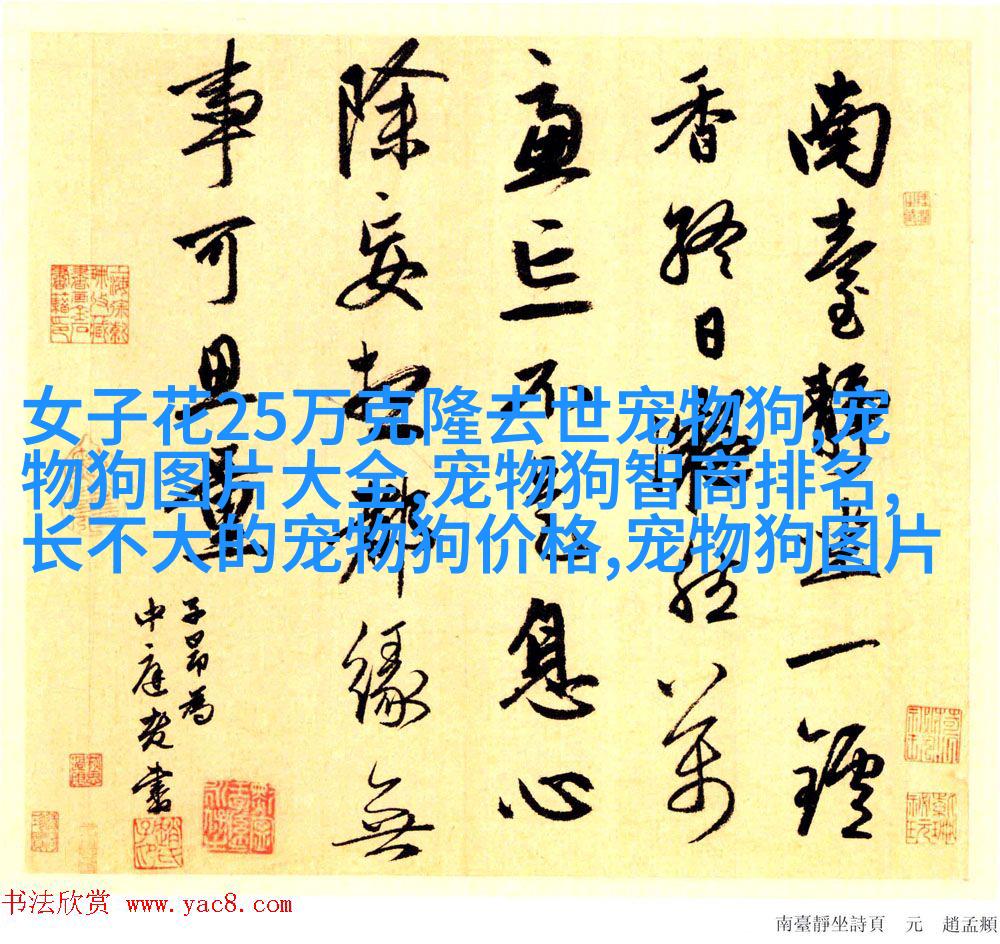 南臺靜坐一鑪
香終日凝然萬
慮亡不是息心
除妄想都緣無
事可思量
子昂為
中庭老書
女子花25万克隆去世宠物狗,宠
物狗图片大全,宠物狗智商排名,
长不大的宠物狗价格,宠物狗图片
书法欣赏 www.yac8.com
南臺靜坐詩頁 元 趙孟頫